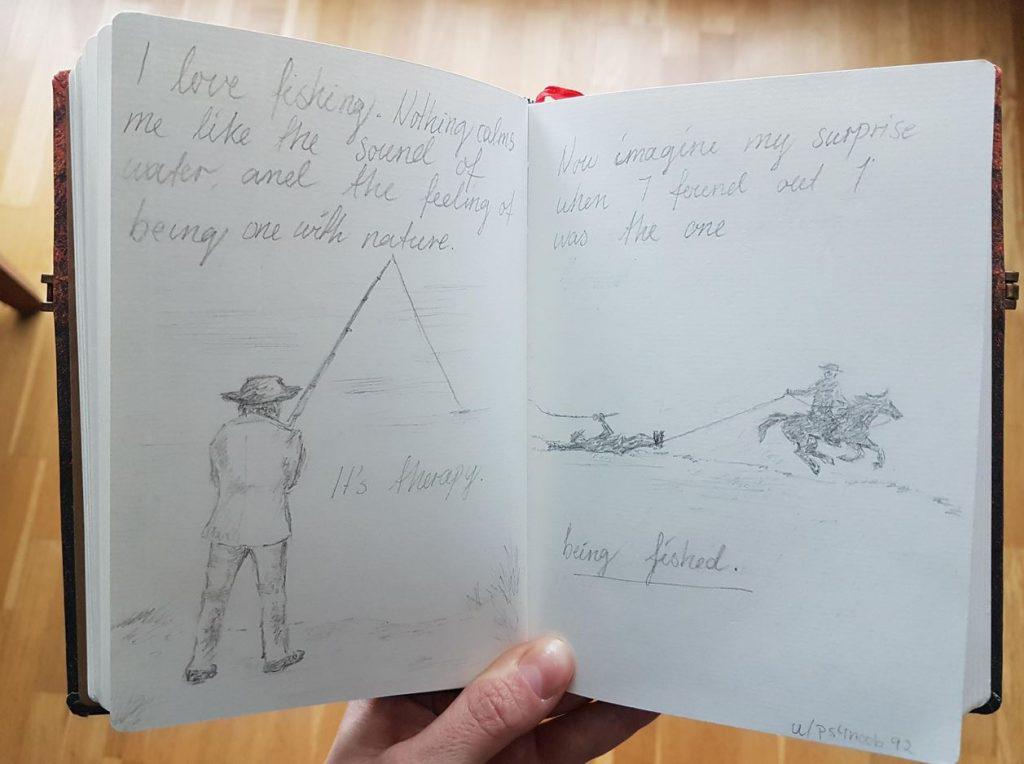 I love fishing. Nothing calms
me like the sound of
water, and the feeling of
being one with nature.
It's therapy.
Now imagine my surprise
when I found out I
was the one
being fished.
u/ps4noob92